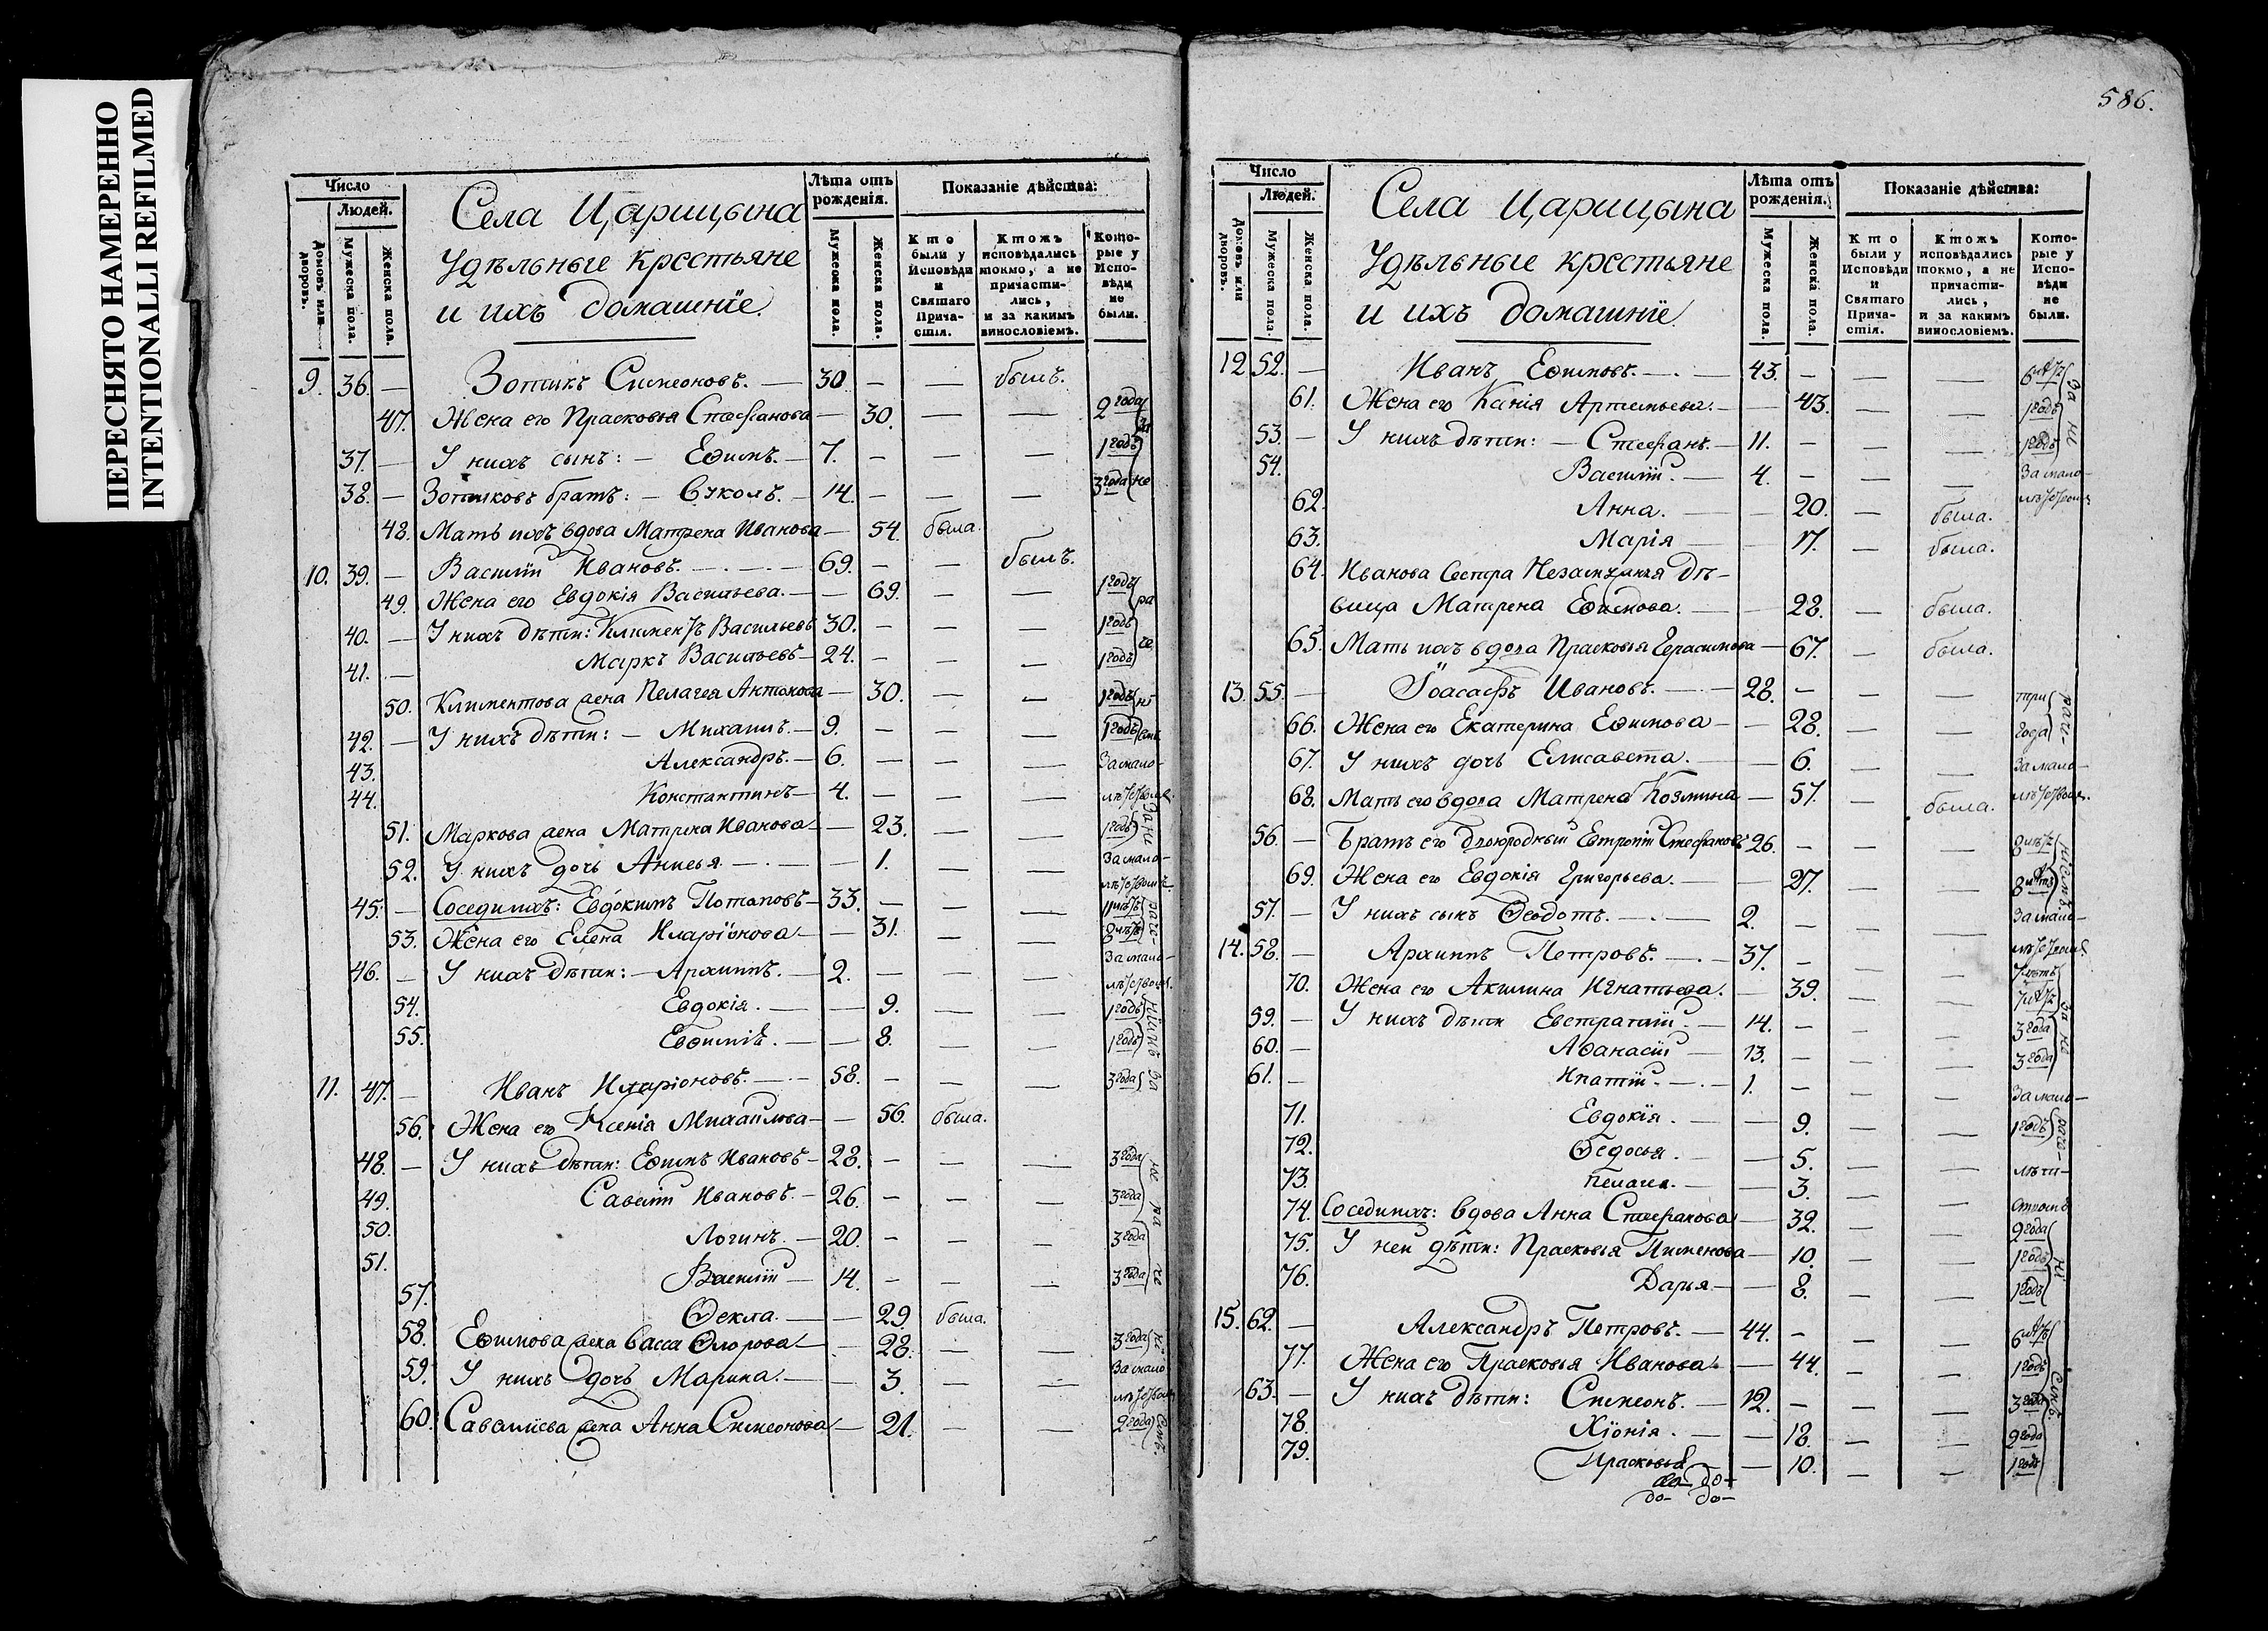 ПЕРЕСНЯТО НАМЕРЕННО
INTENTIONALLI REFILMED
Число
Людей.
Домовъ или дворовъ.
Мужеска пола.
Женска пола.
Села Царицына
Удѣльные крестьяне
и ихъ домашнїе.
Лѣта отъ рожденія.
Мужеска пола.
Женска пола.
Показаніе дѣйства:
Кто были у Исповѣди и Святаго Причастія.
Ктожъ исповѣдались токмо, а не причастились, и за какимъ винословіемъ.
Которые у Исповѣди не были.
9. 36. — Зотикъ Симеоновъ. — 30. — — былъ.
47. Жена его Прасковья Стефанова — 30. — — 2 года
37. — У нихъ сынъ: — Ефимъ. — 7. — — — 1 годъ
38. — Зотиковъ братъ: — Вуколъ. — 14. — — — 3 года не
48. Мать ихъ вдова Матрена Иванова — 54. была.
10. 39. — Василїй Ивановъ. — 69. — — былъ.
49. Жена его Евдокія Васильева. — — 69. — — 1 годъ ра
40. — У нихъ дѣти: Климентъ Васильевъ 30. — — — 1 годъ
41. — Маркъ Васильевъ — 24. — — — 1 годъ
50. Климентова жена Пелагея Антонова — 30. — — 1 годъ
42. — У нихъ дѣти: — Михаилъ. — 9. — — — 1 годъ
43. Александръ. — 6. — — — За мало-
44. Константинъ — 4. — — — лѣтствомъ.
51. Маркова жена Матрена Иванова — — 23. — — 1 годъ
52. У нихъ дочь Анисья — — 1. — — За мало-
45. — Соседихъ: Евдокимъ Потаповъ — 33. — — — 11 лѣтъ
53. Жена его Елена Иларїонова — — 31. — — 8 лѣтъ
46. — У нихъ дѣти: — Архипъ. — 2. — — — За мало-
54. Евдокія. — — 9. — — 1 годъ
55. Евфимія. — — 8. — — 1 годъ
11. 47. — Иванъ Иларіоновъ. — 58. — — — 3 года
56. Жена его Ксенія Михайлова — — 56. была.
48. — У нихъ дѣти: Ефимъ Ивановъ — 28. — — — 3 года
49. Савелїй Ивановъ. — 26. — — — 3 года
50. Логинъ. — 20. — — — 3 года
51. Василїй — 14. — — — 3 года
57. Ѳекла. — — 29. была.
58. Ефимова жена Васса — 28. — — 3 года
59. У нихъ дочь Марина. — — 3. — — За мало
60. Савелїева жена Анна Симеонова — 21. — — 2 года
586.
Число
Людей.
Домовъ или дворовъ.
Мужеска пола.
Женска пола.
Села Царицына
Удѣльные крестьяне
и ихъ домашнїе.
Лѣта отъ рожденія.
Мужеска пола.
Женска пола.
Показаніе дѣйства:
Кто были у Исповѣди и Святаго Причастія.
Ктожъ исповѣдались токмо, а не причастились, и за какимъ винословіемъ.
Которые у Исповѣди не были.
12. 52. — Иванъ Ефимовъ. — 43. — — — 6 лѣтъ
61. Жена его Артемьева. — — 43. — — 1 годъ
53. — У нихъ дѣти: — Стефанъ. — 11. — — — 1 годъ
54. Василїй. — 4. — — — За мало-
62. Анна. — — 20. — была.
63. Марія — — 17. — была.
64. Иванова сестра дѣ-
вица Матрена Ефимова. — — 28. — была.
65. Мать ихъ вдова Прасковья Герасимова — 67. — была.
13. 55. — Іоасафъ Ивановъ. — 28. — — — три
66. Жена его Екатерина Ефимова — — 28. — — года
67. У нихъ дочь Елисавета. — — 6. — — За мало-
68. Мать его вдова Матрена Козмина — 57. — была.
56. — Братъ его двоюродный Евтропїй Стефановъ 26. — — — 8 лѣтъ
69. Жена его Евдокія Григорьева. — — 27. — — 8 лѣтъ
57. — У нихъ сынъ Ѳеодотъ. — 2. — — — За мало-
14. 58. — Архипъ Петровъ. — 37. — — — 7 лѣтъ
70. Жена его Акилина Игнатьева. — 39. — — 7 лѣтъ
59. — У нихъ дѣти Евстратїй. — 14. — — — 3 года
60. — Аѳанасїй — 13. — — — 3 года
61. — Ипатїй. — 1. — — — За мало-
71. Евдокїя. — — 9. — — 1 годъ
72. Ѳедосья. — — 5. — — лѣт-
73. Пелагея. — — 3. — —
74. Соседихъ: вдова Анна Стефанова — 32. — — 2 года
75. У ней дѣти: Прасковья Пименова — 10. — — 1 годъ
76. Дарья — — 8. — — 1 годъ
15. 62. — Александръ Петровъ. — 44. — — — 6 лѣтъ
77. Жена его Прасковья Иванова — 44. — — 1 годъ
63. — У нихъ дѣти: Симеонъ. — 12. — — — 3 года
78. Хїонїя. — — 18. — — 2 года
79. Прасковья — — 10. — — 1 годъ